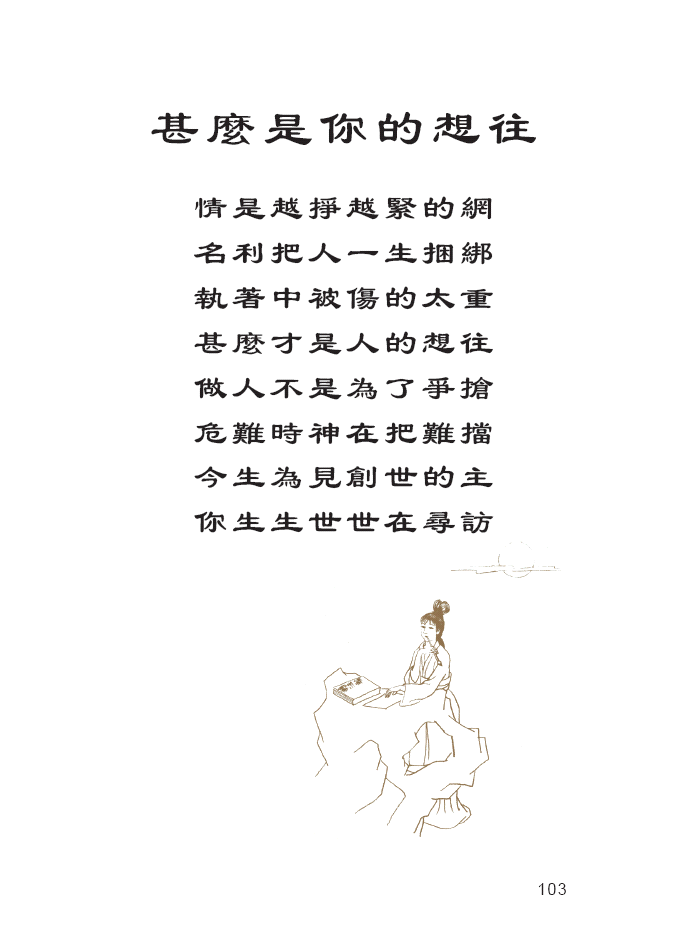 甚麼是你的想往
情是越掙越緊的網
名利把人一生捆綁
執著中被傷的太重
甚麼才是人的想往
做人不是為了爭搶
危難時神在把難擋
今生為見創世的主
你生生世世在尋訪
103